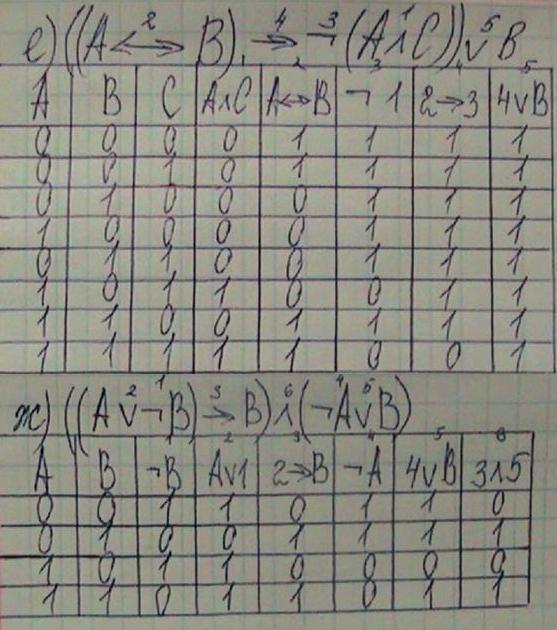 е) ((A ↔ B) → ¬(A∧C)) ∨ B
2 4 3 1 5
A B C A∧C A↔B ¬1 2→3 4∨B
0 0 0 0 1 1 1 1
0 0 1 0 1 1 1 1
0 1 0 0 0 1 1 1
1 0 0 0 0 1 1 1
0 1 1 0 0 1 1 1
1 0 1 1 0 0 1 1
1 1 0 0 1 1 1 1
1 1 1 1 1 0 0 1
ж) ((A ∨ ¬B) → B) ∧ (¬A ∨ B)
2 1 3 6 4 5
A B ¬B A∨1 2→B ¬A 4∨B 3∧5
0 0 1 1 0 1 1 0
0 1 0 0 1 1 1 1
1 0 1 1 0 0 0 0
1 1 0 1 1 0 1 1